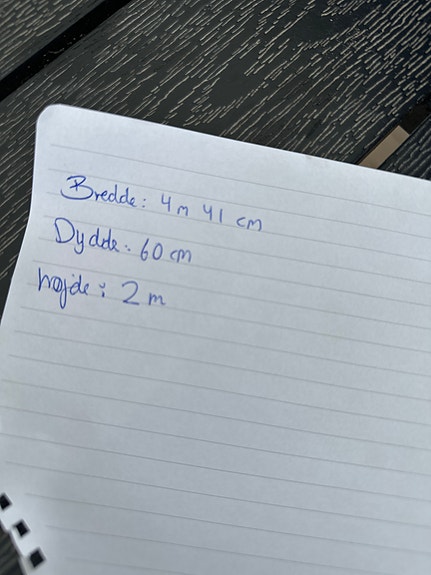 Bredde: 4 m 41 cm
Dydde: 60 cm
højde: 2 m